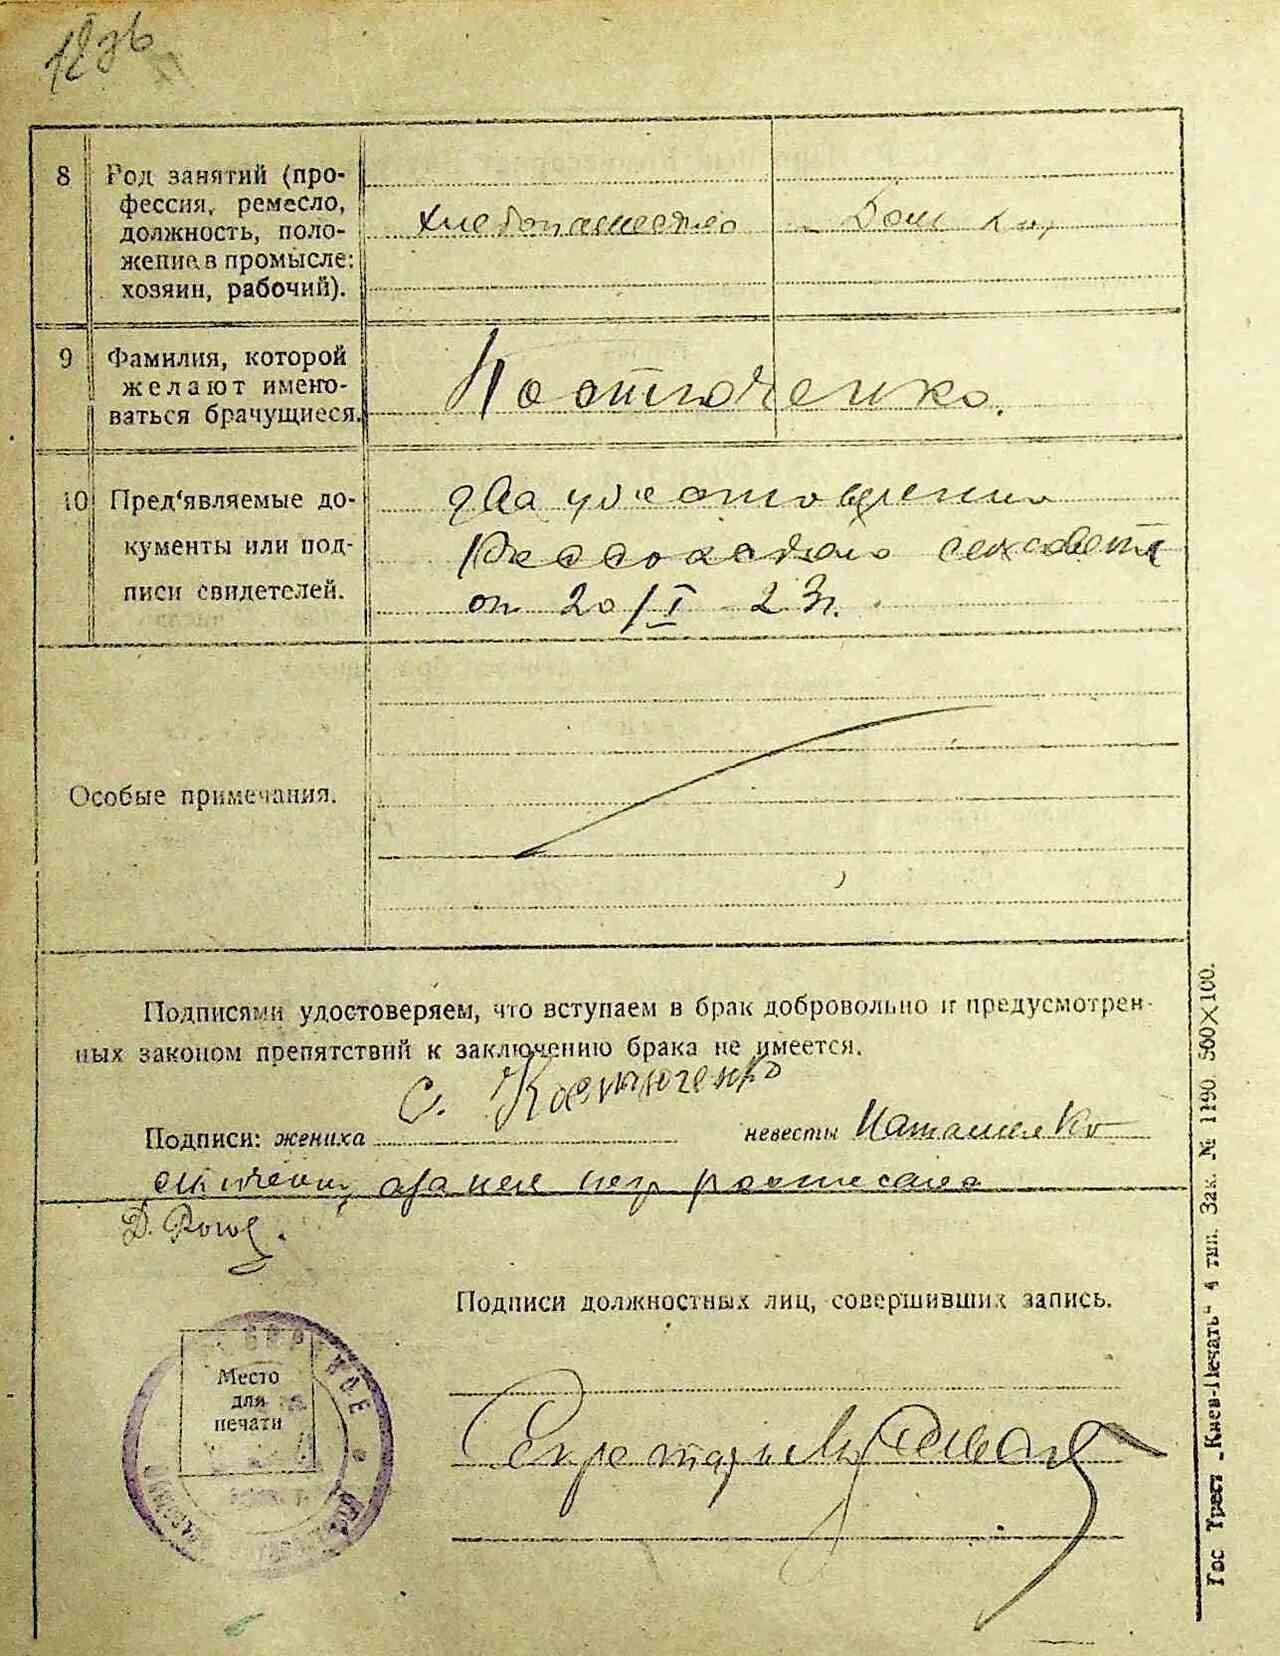 8 Род занятий (про-
фессия, ремесло,
должность, поло-
жение в промысле:
хозяин, рабочий).
хлебопашество Дом хоз
9 Фамилия, которой
желают имено-
ваться брачущиеся.
Костюченко.
10 Пред‘являемые до-
кументы или под-
писи свидетелей.
два удостоверения
сельсовета
от 20/I 23г.
Особые примечания.
Подписями удостоверяем, что вступаем в брак добровольно и предусмотрен-
ных законом препятствий к заключению брака не имеется.
С. Костюченко
Подписи: жениха невесты
Д.
Подписи должностных лиц, совершивших запись.
Место
для
печати
Секретарь
Гос Трест „Киев-Печать“ 4 тип. Зак. № 1190. 500×100.